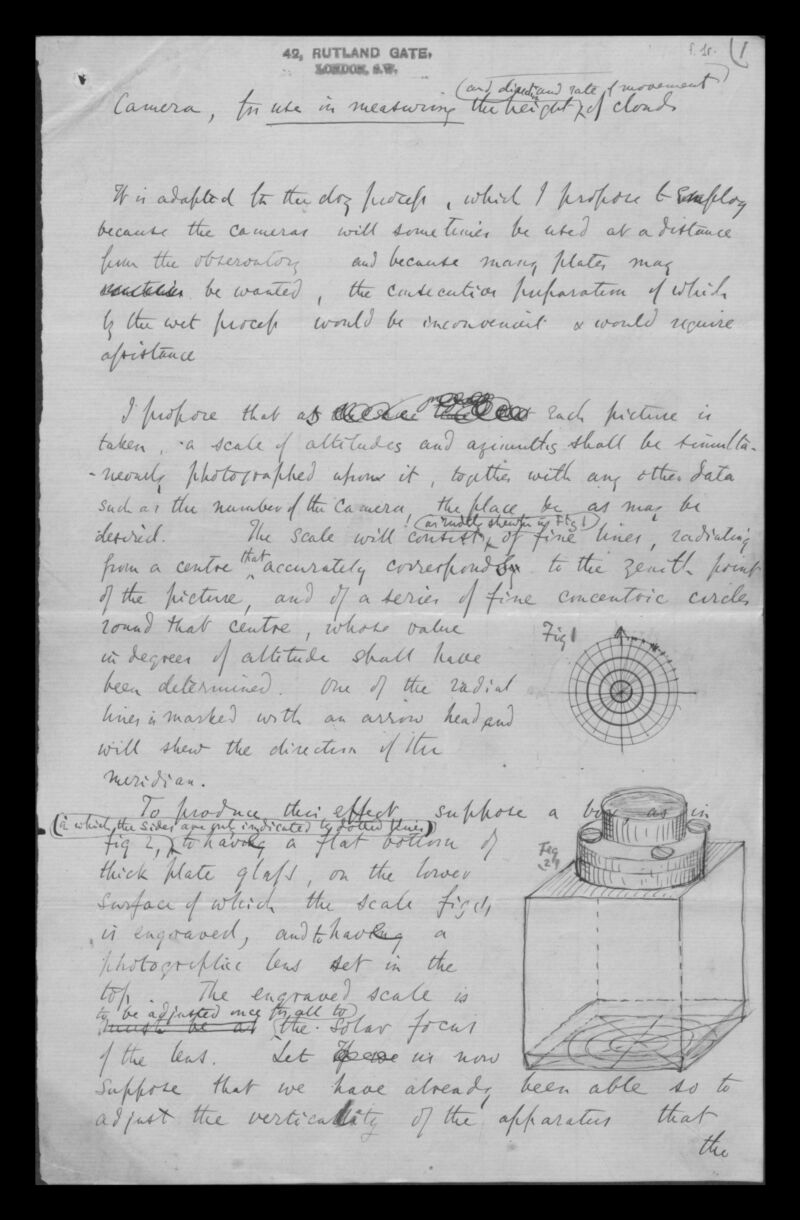 42, RUTLAND GATE,
LONDON, S.W.
(1
(and direction and rate of movement)
Camera, for use in measuring the height of clouds
It is adapted for the dry process, which I propose to employ
because the cameras will sometimes be used at a distance
from the observatory and because many plates may
be wanted, the consecutive preparation of which
by the wet process would be inconvenient & would require
assistance
I propose that as each picture is
taken, a scale of altitudes and azimuths shall be simulta-
-neously photographed upon it, together with any other data
such as the number of the camera, the place &c, as may be
desired. The scale will consist, (as rudely shewn in Fig 1) of fine lines, radiating
from a centre that accurately corresponds to the zenith point
of the picture, and of a series of fine concentric circles
round that centre, whose value
in degrees of altitude shall have
been determined. One of the radial
lines is marked with an arrow head and
will shew the direction of the
meridian.
Fig 1
To produce this effect suppose a box, as in
(in which the sides are only indicated by dotted lines)
Fig 2, to have a flat bottom of
thick plate glass, on the lower
surface of which the scale fig 1,
is engraved, and to have a
photographic lens set in the
top. The engraved scale is
to be adjusted once for all to
must be at the solar focus
of the lens. Let us now
Fig 2
suppose that we have already been able so to
adjust the verticality of the apparatus that
the